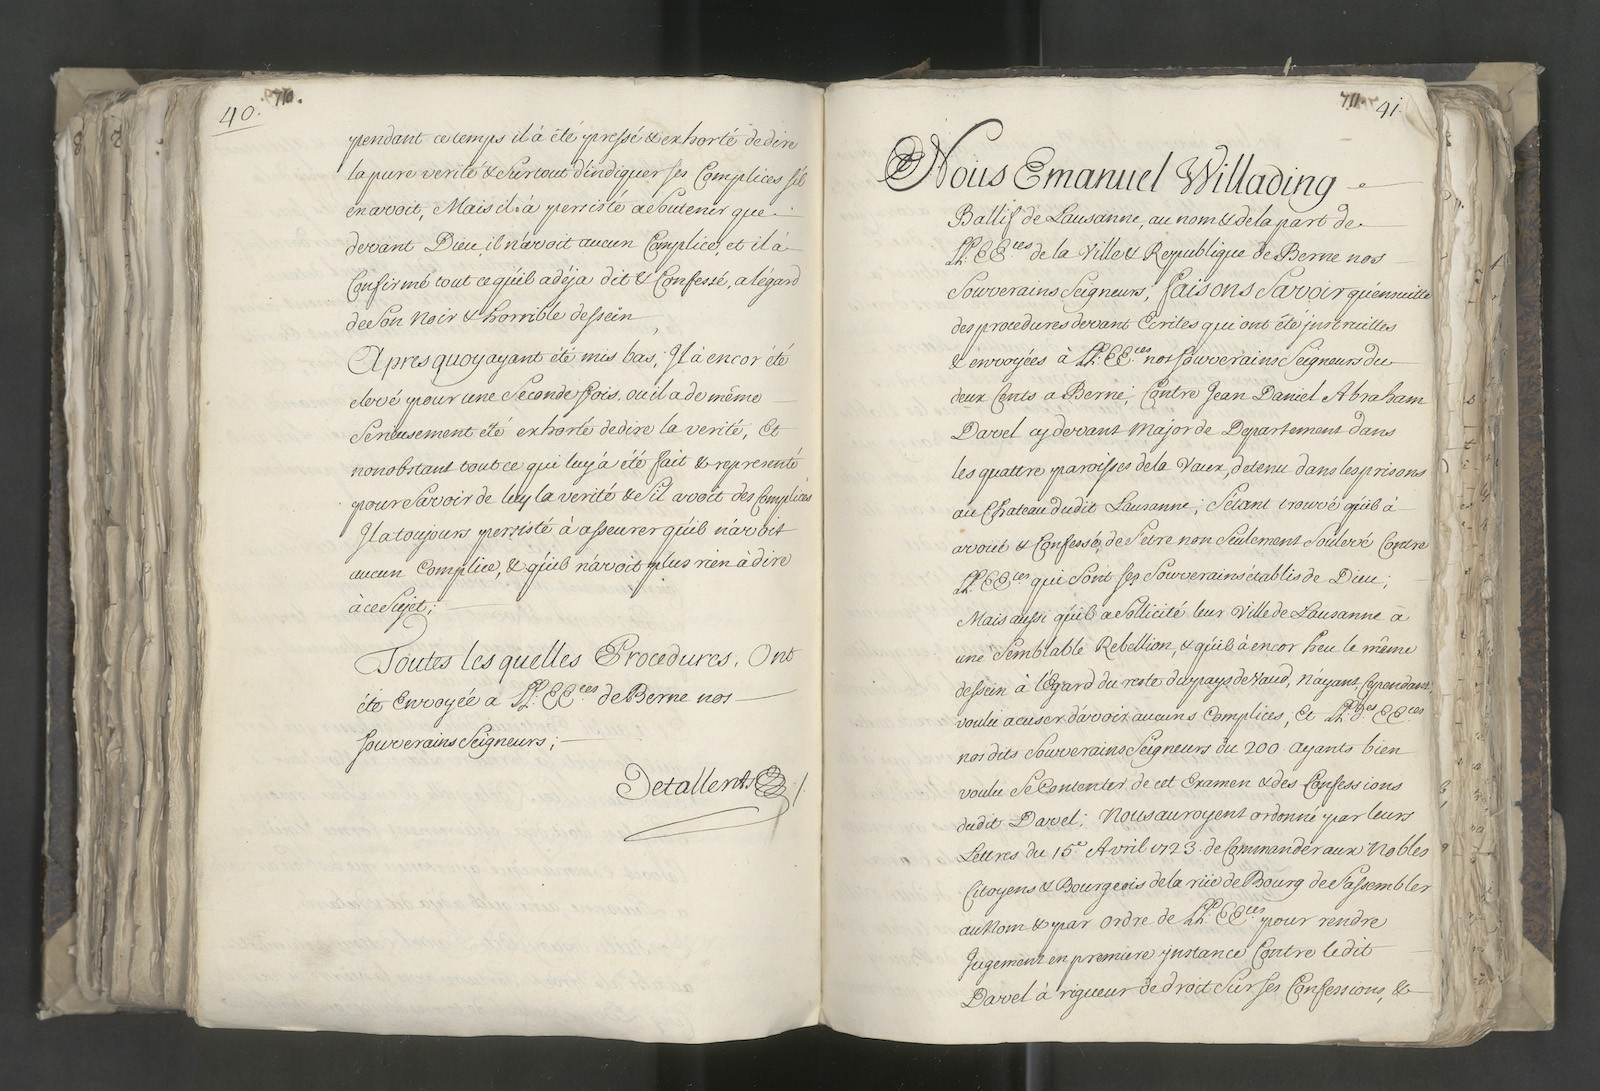 40. 710.
pendant ce temps il à été pressé & exhorté de dire
la pure verité & Surtout d'indiquer ses Complices s'il
en avoit, Mais il à persisté a Soutenir que
devant Dieu, il n'avoit aucun Complice, et il à
Confirmé tout ce qu'il a déja dit & Confessé, a légard
de Son Noir & horrible dessein
Apres quoy ayant été mis bas, Il à encor été
elevé pour une Seconde fois, ou il a de même
Serieusement été exhorté de dire la verité, Et
nonobstant tout ce qui luy à été fait & representé
pour Savoir de luy la verité & S'il avoit des Complices
Il a toujours persisté à asseurer qu'il n'avoit
aucun Complice, & qu'il n'avoit plus rien à dire
à ce Sujet;
Toutes les quelles Procedures, Ont
été Envoyée a LL. EE.ces de Berne nos
Souverains Seigneurs;
Detallents
711. 41.
Nous Emanuel Willading
Ballif de Lausanne, au nom & de la part de
LL. EE.ces de la Ville & Republique de Berne nos
Souverains Seigneurs, faisons Savoir qu'ensuitte
des procedures devant Ecrites qui ont été instruittes
& envoyées à LL. EE.ces nos Souverains Seigneurs du
deux Cents a Berne, Contre Jean Daniel Abraham
Davel cy devant Major de Departement dans
les quattre paroisses de la Vaux, detenu dans les prisons
au Chateau dudit Lausanne; S'étant trouvé qu'il à
avoüé & Confessé, de S'etre non Seulement Soulevé Contre
LL. EE.ces qui Sont ses Souverains établis de Dieu;
Mais aussi qu'il a Sollicité leur Ville de Lausanne à
une Semblable Rebellion, & qu'il à encor heu le même
dessein à l'Egard du reste du pays de Vaud, n'ayant, Cependant,
voulu acuser d'avoir aucuns Complices, Et LL. dites EE.ces
nos dits Souverains Seigneurs du 200 ayants bien
voulu Se Contenter de cet Examen & des Confessions
dudit Davel; Nous auroyent ordonné par leurs
Lettres du 15e Avril 1723. de Commander aux Nobles
Citoyens & Bourgeois de la rüe de Bourg de S'assembler
au Nom & par ordre de LL. EE.ces pour rendre
Jugement en premiere instance Contre ledit
Davel à rigueur de droit Sur ses Confessions, &